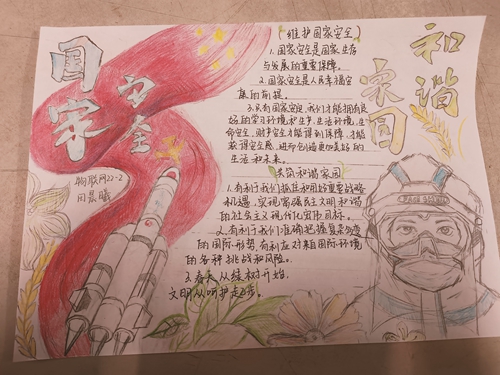 国家
安全
和谐
家园
维护国家安全
1.国家安全是国家生存
与发展的重要保障。
2.国家安全是人民幸福安
康的前提。
3.只有国家安定,我们才能拥有良
好的学习环境和生产、生活环境,生
命安全、财产安全才能得到保障,才能
获得安全感,进而创造更加美好的
生活和未来。
共筑和谐家园
1.有利于我们抓住和用好重要战略
机遇,实现富强民主文明和谐
的社会主义现代化宏伟目标。
2.有利于我们准确把握复杂多变
的国际形势,有利应对来自国际环境
的各种挑战和风险。
3.春天从绿树开始,
文明从呵护起步。
物联网22-2